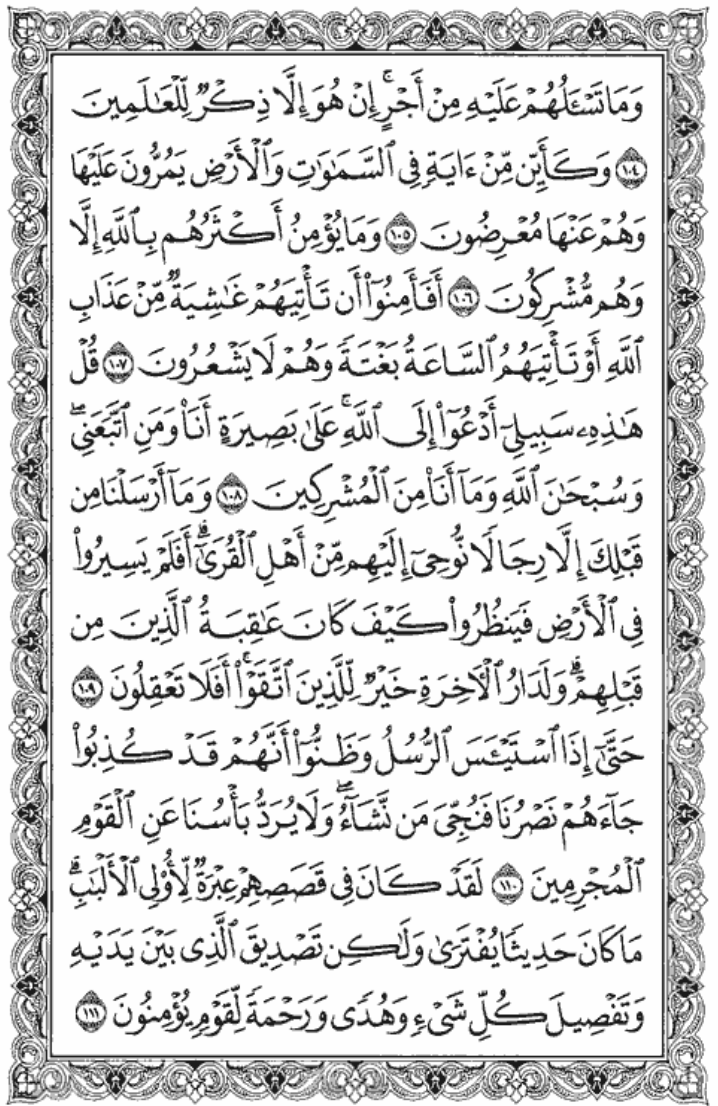 وَمَا تَسْـَٔلُهُمْ عَلَيْهِ مِنْ أَجْرٍۚ إِنْ هُوَ إِلَّا ذِكْرٌ لِّلْعَـٰلَمِينَ
١٠٤ وَكَأَيِّن مِّنْ ءَايَةٍ فِى ٱلسَّمَـٰوَٰتِ وَٱلْأَرْضِ يَمُرُّونَ عَلَيْهَا
وَهُمْ عَنْهَا مُعْرِضُونَ ١٠٥ وَمَا يُؤْمِنُ أَكْثَرُهُم بِٱللَّهِ إِلَّا
وَهُم مُّشْرِكُونَ ١٠٦ أَفَأَمِنُوٓا۟ أَن تَأْتِيَهُمْ غَـٰشِيَةٌ مِّنْ عَذَابِ
ٱللَّهِ أَوْ تَأْتِيَهُمُ ٱلسَّاعَةُ بَغْتَةً وَهُمْ لَا يَشْعُرُونَ ١٠٧ قُلْ
هَـٰذِهِۦ سَبِيلِىٓ أَدْعُوٓا۟ إِلَى ٱللَّهِۚ عَلَىٰ بَصِيرَةٍ أَنَا۠ وَمَنِ ٱتَّبَعَنِىۖ
وَسُبْحَـٰنَ ٱللَّهِ وَمَآ أَنَا۠ مِنَ ٱلْمُشْرِكِينَ ١٠٨ وَمَآ أَرْسَلْنَا مِن
قَبْلِكَ إِلَّا رِجَالًا نُّوحِىٓ إِلَيْهِم مِّنْ أَهْلِ ٱلْقُرَىٰٓۗ أَفَلَمْ يَسِيرُوا۟
فِى ٱلْأَرْضِ فَيَنظُرُوا۟ كَيْفَ كَانَ عَـٰقِبَةُ ٱلَّذِينَ مِن
قَبْلِهِمْۗ وَلَدَارُ ٱلْـَٔاخِرَةِ خَيْرٌ لِّلَّذِينَ ٱتَّقَوْا۟ۚ أَفَلَا تَعْقِلُونَ ١٠٩
حَتَّىٰٓ إِذَا ٱسْتَيْـَٔسَ ٱلرُّسُلُ وَظَنُّوٓا۟ أَنَّهُمْ قَدْ كُذِبُوا۟
جَآءَهُمْ نَصْرُنَا فَنُجِّىَ مَن نَّشَآءُۖ وَلَا يُرَدُّ بَأْسُنَا عَنِ ٱلْقَوْمِ
ٱلْمُجْرِمِينَ ١١٠ لَقَدْ كَانَ فِى قَصَصِهِمْ عِبْرَةٌ لِّأُو۟لِى ٱلْأَلْبَـٰبِۗ
مَا كَانَ حَدِيثًا يُفْتَرَىٰ وَلَـٰكِن تَصْدِيقَ ٱلَّذِى بَيْنَ يَدَيْهِ
وَتَفْصِيلَ كُلِّ شَىْءٍ وَهُدًى وَرَحْمَةً لِّقَوْمٍ يُؤْمِنُونَ ١١١